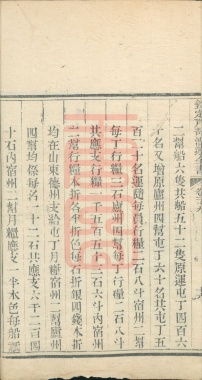 二幫船六隻共船五十二隻原運屯丁四百六
十名又增原廬州四幫屯丁六十名共屯丁五
百二十名運隨每員行糧二石八斗宿州二幫
每丁行糧三石廬州四幫每丁行糧二石八斗
共應支行糧一千五百五十三石六斗內宿州
二幫行糧本折各半折色每石折銀四錢本折
均在山東德州支給屯丁月糧宿州二幫廬州
四幫均係每名一十二石共應支六千二百四
十石內宿州二幫月糧應支一半本色每船